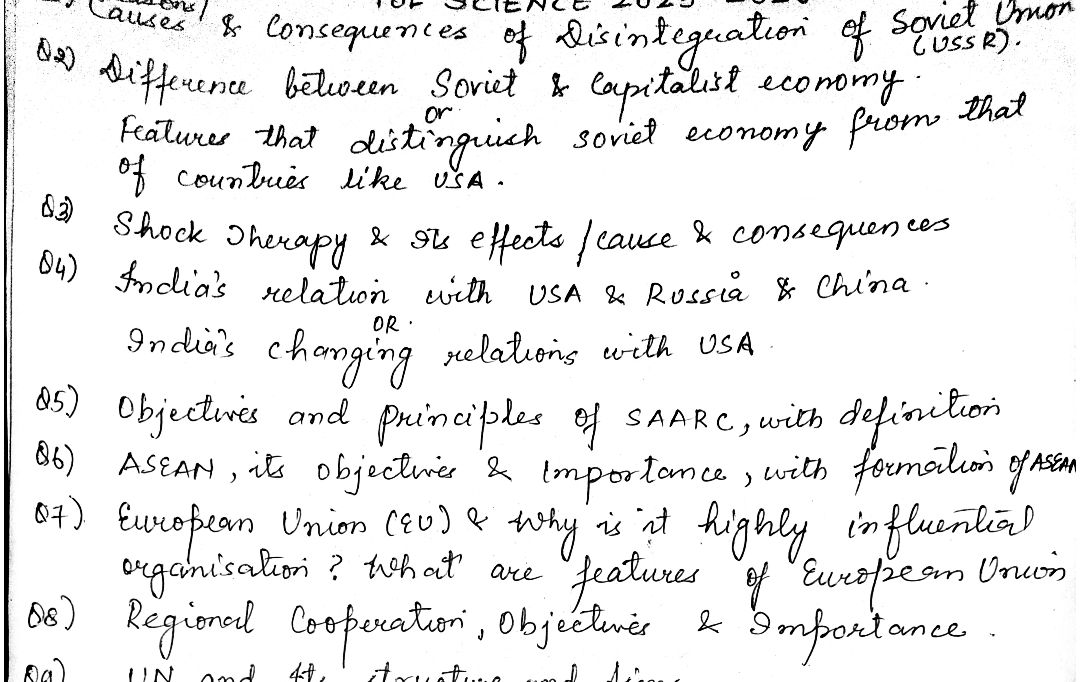 SCIENCE 2025
Causes & Consequences of Disintegration of Soviet Union
(USSR).
Q2) Difference between Soviet & Capitalist economy.
or
Features that distinguish soviet economy from that
of countries like USA.
Q3) Shock Therapy & Its effects / cause & consequences
Q4) India's relation with USA & Russia & China.
OR.
India's changing relations with USA
Q5) Objectives and principles of SAARC, with definition
Q6) ASEAN, its objectives & Importance, with formation of ASEAN
Q7) European Union (EU) & Why is it highly influential
organisation? What are features of European Union
Q8) Regional Cooperation, Objectives & Importance.
Q9) UN and Its structure and